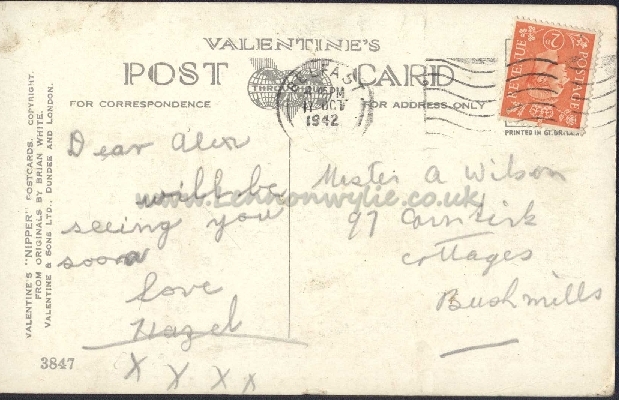 VALENTINE'S
POST CARD
THROUGHOUT
FOR CORRESPONDENCE
FOR ADDRESS ONLY
BELFAST
PM
17 OCT
1942
POSTAGE
REVENUE
2D
PRINTED IN GT. BRITAIN
VALENTINE'S "NIPPER" POSTCARDS. COPYRIGHT.
FROM ORIGINALS BY BRIAN WHITE.
VALENTINE & SONS LTD., DUNDEE AND LONDON.
Dear Alex
will be
seeing you
soon
love
Hazel
X X X X
Mester A Wilson
97
cottages
Bushmills
www.Lennonwylie.co.uk
3847